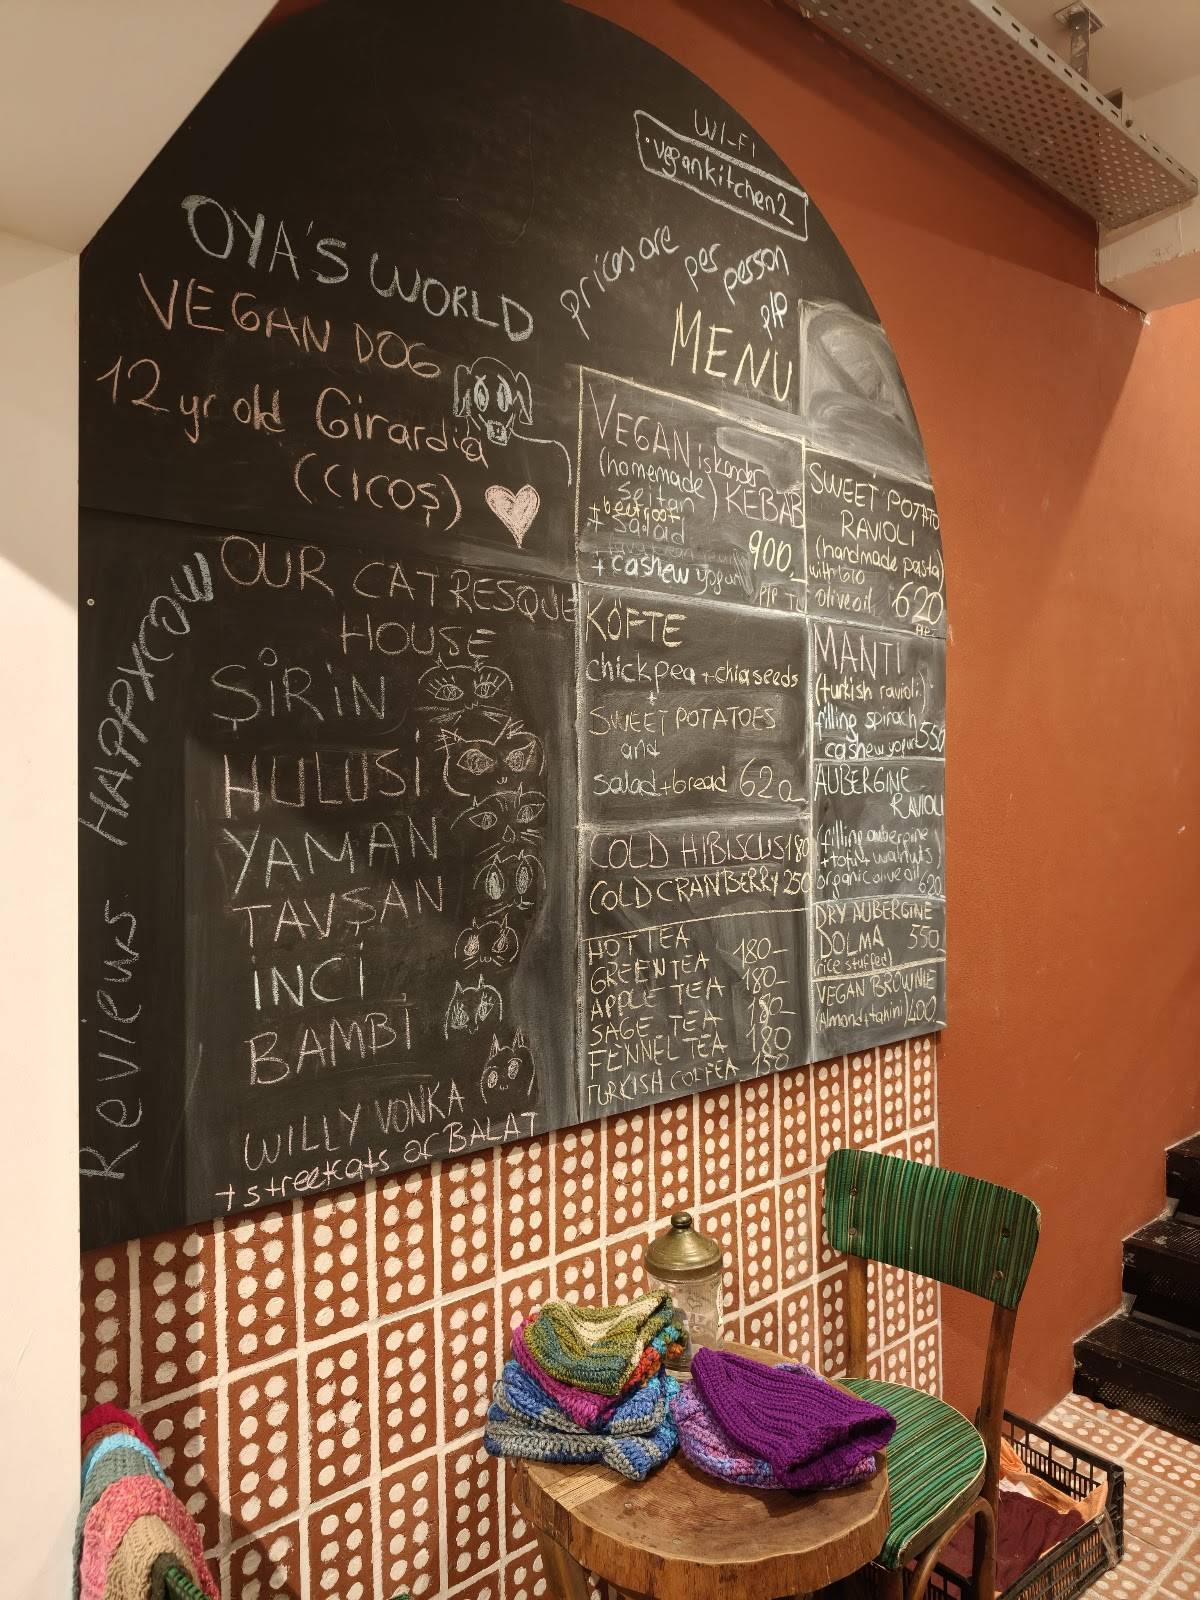 WI-FI
vegankitchen2
OYA'S WORLD
VEGAN DOG
12 yr old Girardia
(CICOŞ)
OUR CAT RESQUE
HOUSE
ŞİRİN
HULUSİ
YAMAN
TAVŞAN
İNCİ
BAMBİ
WILLY VONKA
+ streetcats of BALAT
Reviews HAPPYCOW
prices are per person
P/P
MENU
VEGAN iskender
(homemade seitan) KEBAB
+ beetroot
+ salad
+ cashew yogurt
900
P/P TL
KÖFTE
chickpea + chiaseeds
+
SWEET POTATOES
and
salad + bread 620
COLD HIBISCUS 180
COLD CRANBERRY 250
HOT TEA 180-
GREEN TEA 180-
APPLE TEA 180-
SAGE TEA 180
FENNEL TEA 150
TURKISH COFFEA
SWEET POTATO
RAVIOLI
(handmade pasta)
with BIO
olive oil 620
MANTI
(turkish ravioli)
filling spinach
cashew yogurt 550
AUBERGINE
RAVIOLI
(filling aubergine
+ tofu + walnuts)
organic olive oil
620
DRY AUBERGINE
DOLMA 550
(rice stuffed)
VEGAN BROWNIE
(Almond + tahini) 400